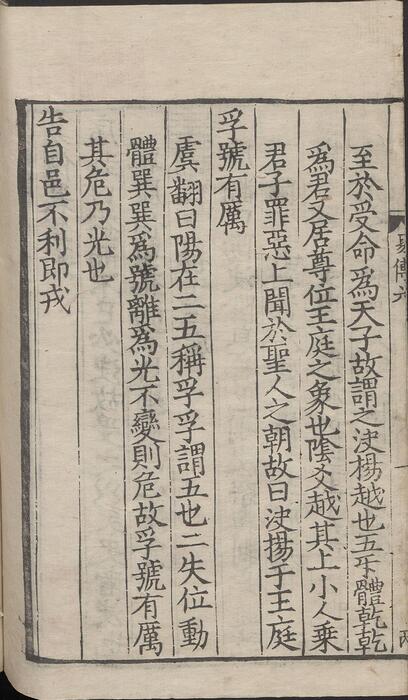 易傳六
至於受命爲天子故謂之決揚越也五互體乾乾
爲君又居尊位王庭之象也陰爻越其上小人乗
君子罪惡上聞於聖人之朝故曰決揚于王庭
孚號有厲
虞翻曰陽在二五稱孚孚謂五也二失位動
體巽巽爲號離爲光不變則危故孚號有厲
其危乃光也
告自邑不利即戎